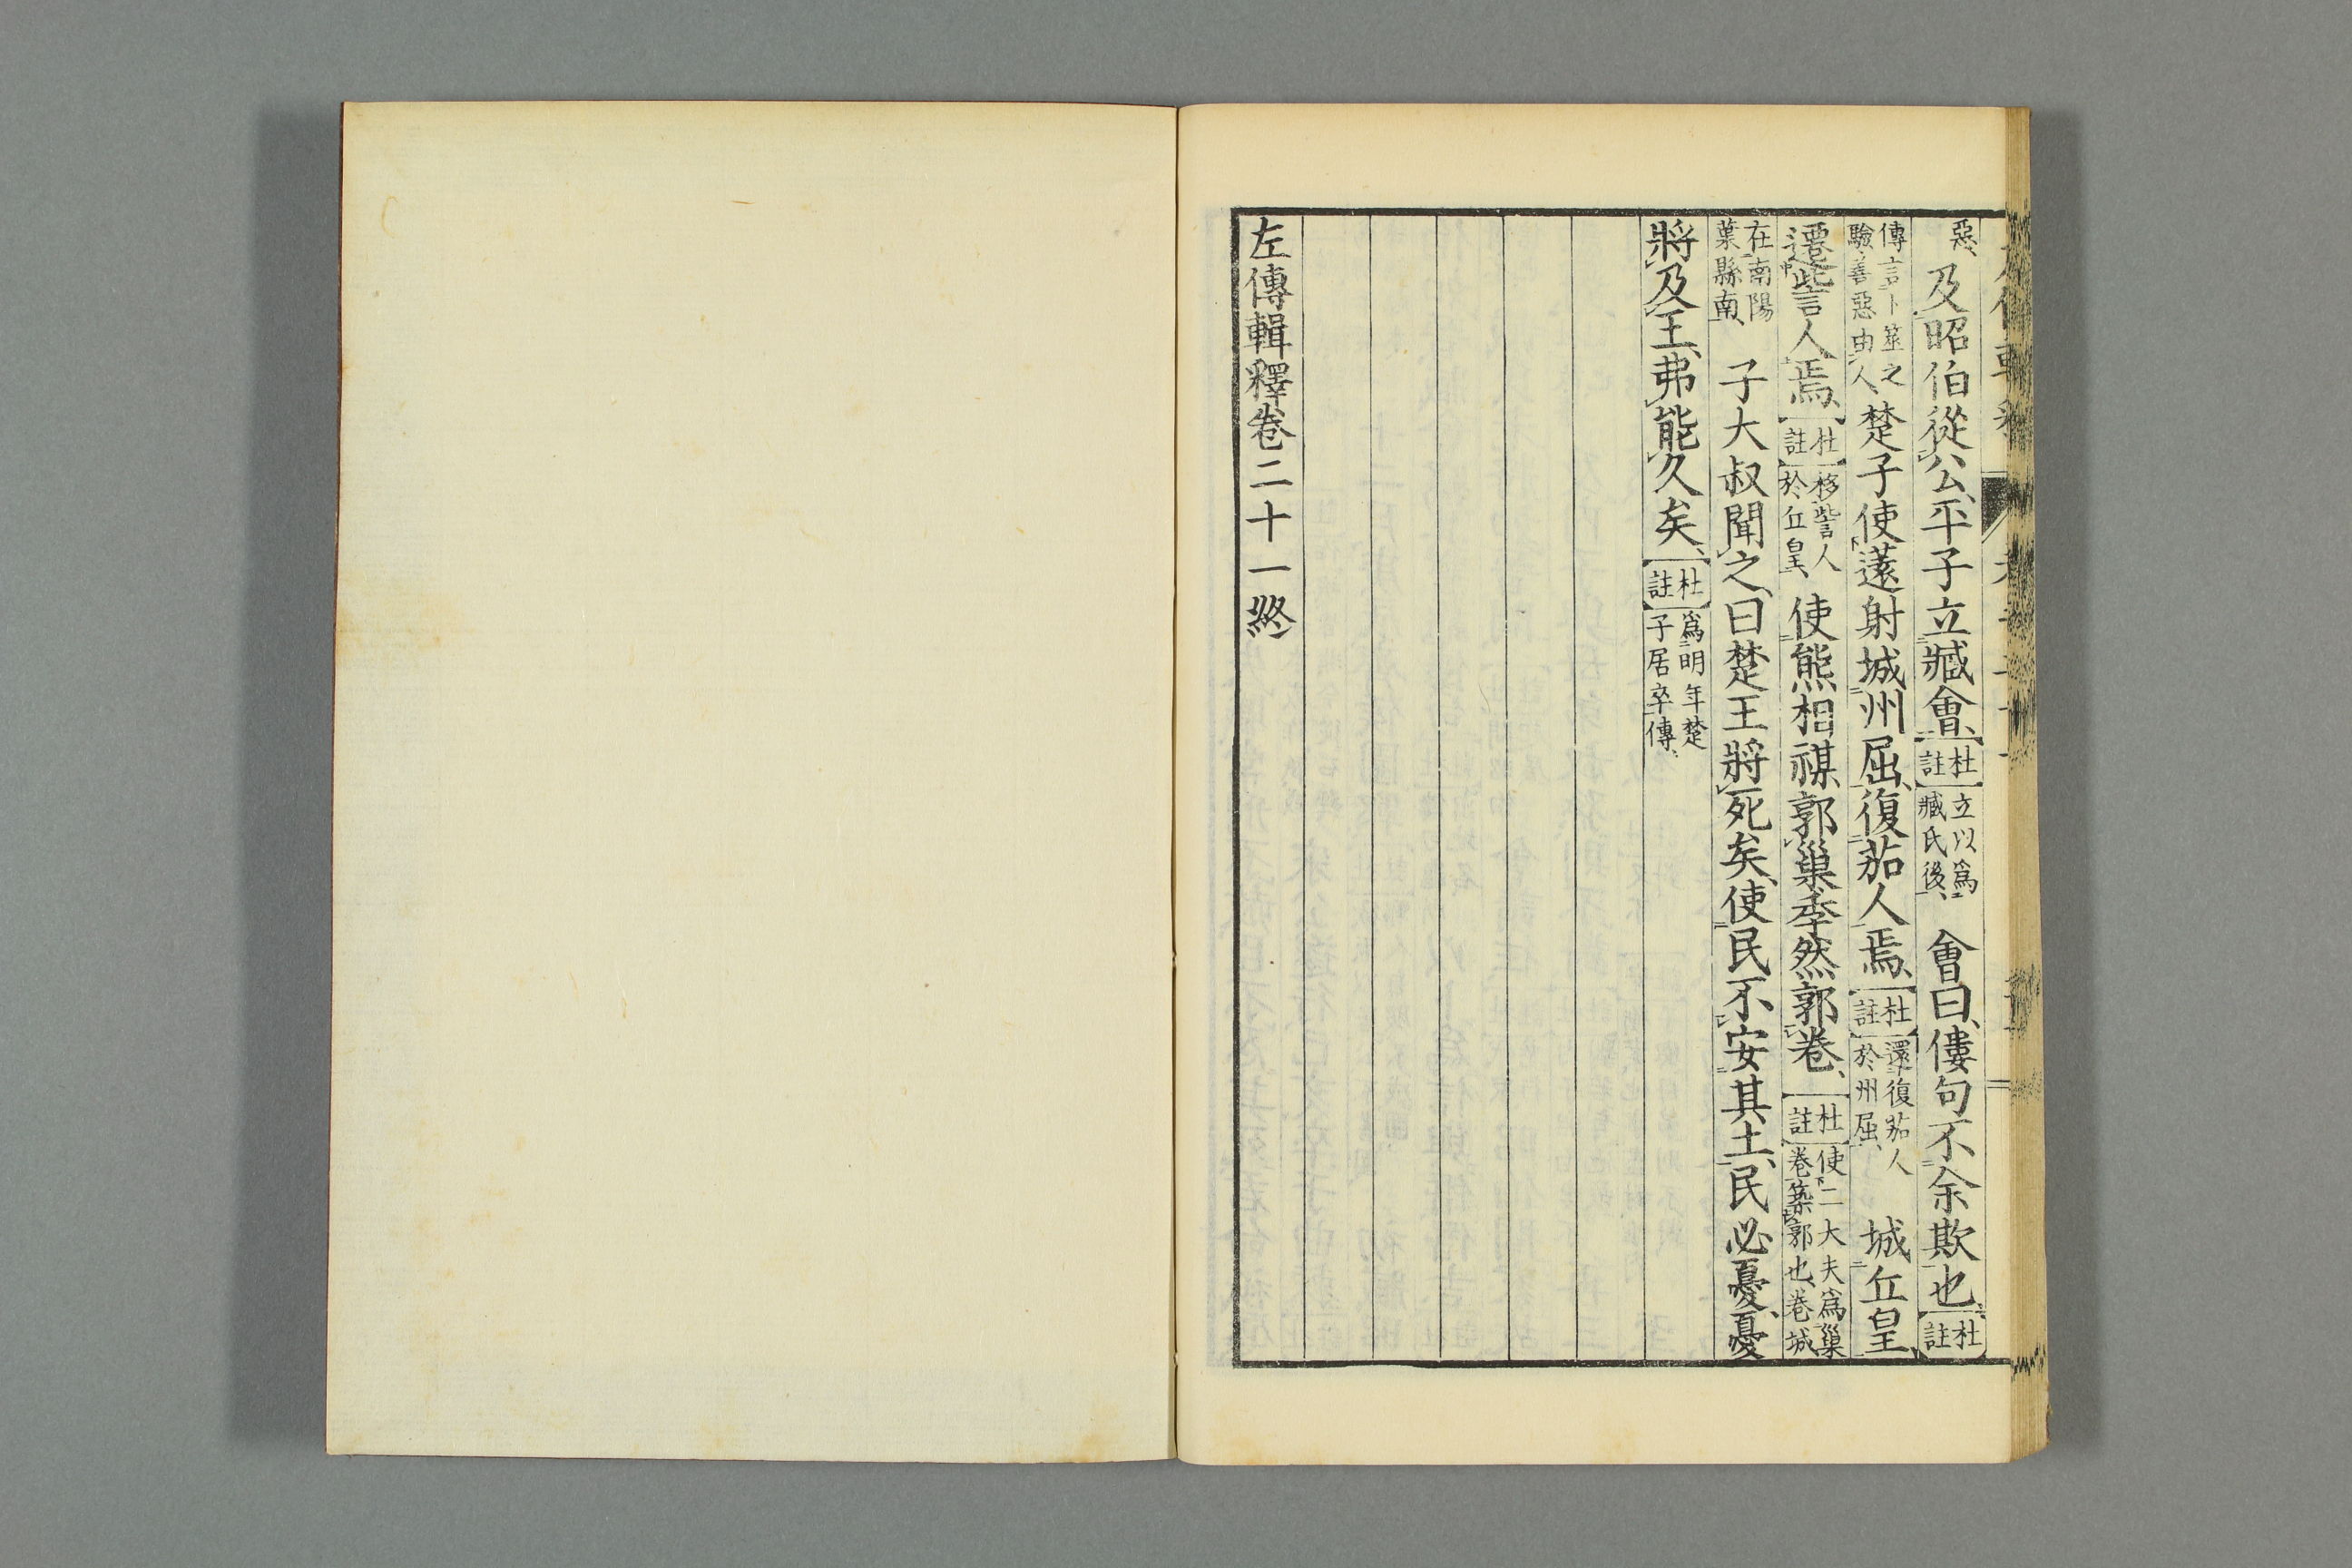 惡、及昭伯從公、平子立臧會、【杜註】立以爲臧氏後、會曰、僂句不余欺也、【杜註】
傳言卜筮之驗、善惡由人、楚子使薳射城州屈、復茄人焉、【杜註】還復茄人於州屈、城丘皇、
遷訾人焉、【杜註】移訾人於丘皇、使熊相禖郭巢、季然郭卷、【杜註】使二大夫爲巢卷築郭也、卷城
在南陽葉縣南、子大叔聞之、曰楚王將死矣、使民不安其土、民必憂、憂
將及王、弗能久矣、【杜註】爲明年楚子居卒傳、
左傳輯釋卷二十一終